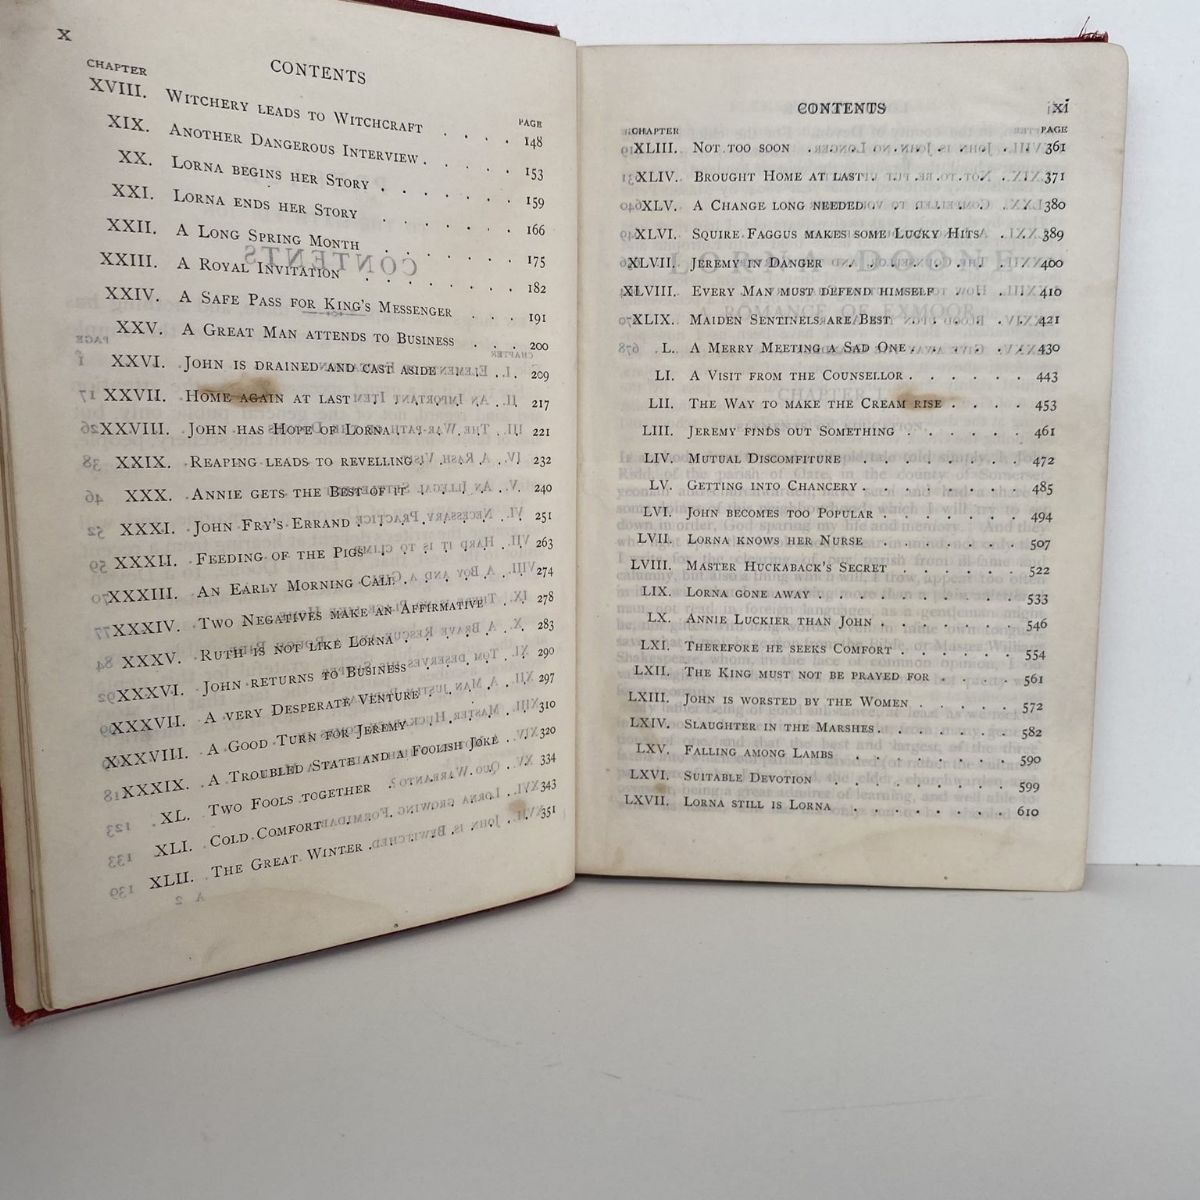 x
CONTENTS
CHAPTER PAGE
XVIII. WITCHERY LEADS TO WITCHCRAFT . . . . 148
XIX. ANOTHER DANGEROUS INTERVIEW . . . . 153
XX. LORNA BEGINS HER STORY . . . . . . 159
XXI. LORNA ENDS HER STORY . . . . . . 166
XXII. A LONG SPRING MONTH . . . . . . 175
XXIII. A ROYAL INVITATION . . . . . . . 182
XXIV. A SAFE PASS FOR KING'S MESSENGER . . . 191
XXV. A GREAT MAN ATTENDS TO BUSINESS . . . 200
XXVI. JOHN IS DRAINED AND CAST ASIDE . . . . 209
XXVII. HOME AGAIN AT LAST . . . . . . 217
XXVIII. JOHN HAS HOPE OF LORNA . . . . . 221
XXIX. REAPING LEADS TO REVELLING . . . . 232
XXX. ANNIE GETS THE BEST OF IT . . . . . 240
XXXI. JOHN FRY'S ERRAND . . . . . . 251
XXXII. FEEDING OF THE PIGS . . . . . . 263
XXXIII. AN EARLY MORNING CALL . . . . . 274
XXXIV. TWO NEGATIVES MAKE AN AFFIRMATIVE . . . 278
XXXV. RUTH IS NOT LIKE LORNA . . . . . 283
XXXVI. JOHN RETURNS TO BUSINESS . . . . . 290
XXXVII. A VERY DESPERATE VENTURE . . . . . 297
XXXVIII. A GOOD TURN FOR JEREMY . . . . . 310
XXXIX. A TROUBLED STATE AND A FOOLISH JOKE . . 320
XL. TWO FOOLS TOGETHER . . . . . . 334
XLI. COLD COMFORT . . . . . . . 343
XLII. THE GREAT WINTER . . . . . . 351
CONTENTS xi
CHAPTER PAGE
XLIII. NOT TOO SOON . . . . . . . 361
XLIV. BROUGHT HOME AT LAST . . . . . 371
XLV. A CHANGE LONG NEEDED . . . . . 380
XLVI. SQUIRE FAGGUS MAKES SOME LUCKY HITS . . 389
XLVII. JEREMY IN DANGER . . . . . . 400
XLVIII. EVERY MAN MUST DEFEND HIMSELF . . . . 410
XLIX. MAIDEN SENTINELS ARE BEST . . . . . 421
L. A MERRY MEETING A SAD ONE . . . . . 430
LI. A VISIT FROM THE COUNSELLOR . . . . . 443
LII. THE WAY TO MAKE THE CREAM RISE . . . . 453
LIII. JEREMY FINDS OUT SOMETHING . . . . . 461
LIV. MUTUAL DISCOMFITURE . . . . . . 472
LV. GETTING INTO CHANCERY . . . . . . 485
LVI. JOHN BECOMES TOO POPULAR . . . . . . 494
LVII. LORNA KNOWS HER NURSE . . . . . . 507
LVIII. MASTER HUCKABACK'S SECRET . . . . . 522
LIX. LORNA GONE AWAY . . . . . . . 533
LX. ANNIE LUCKIER THAN JOHN . . . . . . 546
LXI. THEREFORE HE SEEKS COMFORT . . . . . 554
LXII. THE KING MUST NOT BE PRAYED FOR . . . . 561
LXIII. JOHN IS WORSTED BY THE WOMEN . . . . . 572
LXIV. SLAUGHTER IN THE MARSHES . . . . . . 582
LXV. FALLING AMONG LAMBS . . . . . . 590
LXVI. SUITABLE DEVOTION . . . . . . . 599
LXVII. LORNA STILL IS LORNA . . . . . . 610